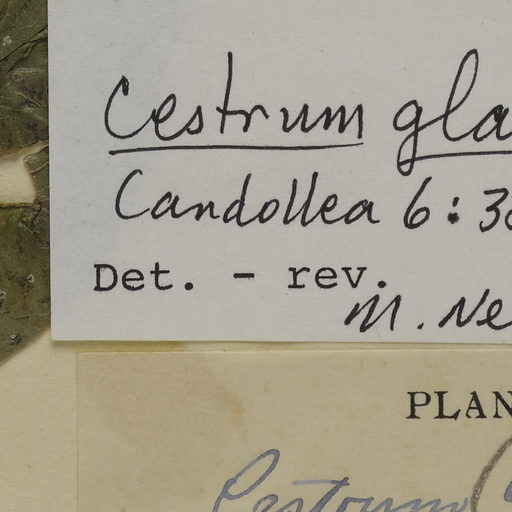 Cestrum gla
Candollea 6:36
Det. - rev.
M. Ne
PLAN
Cestrum